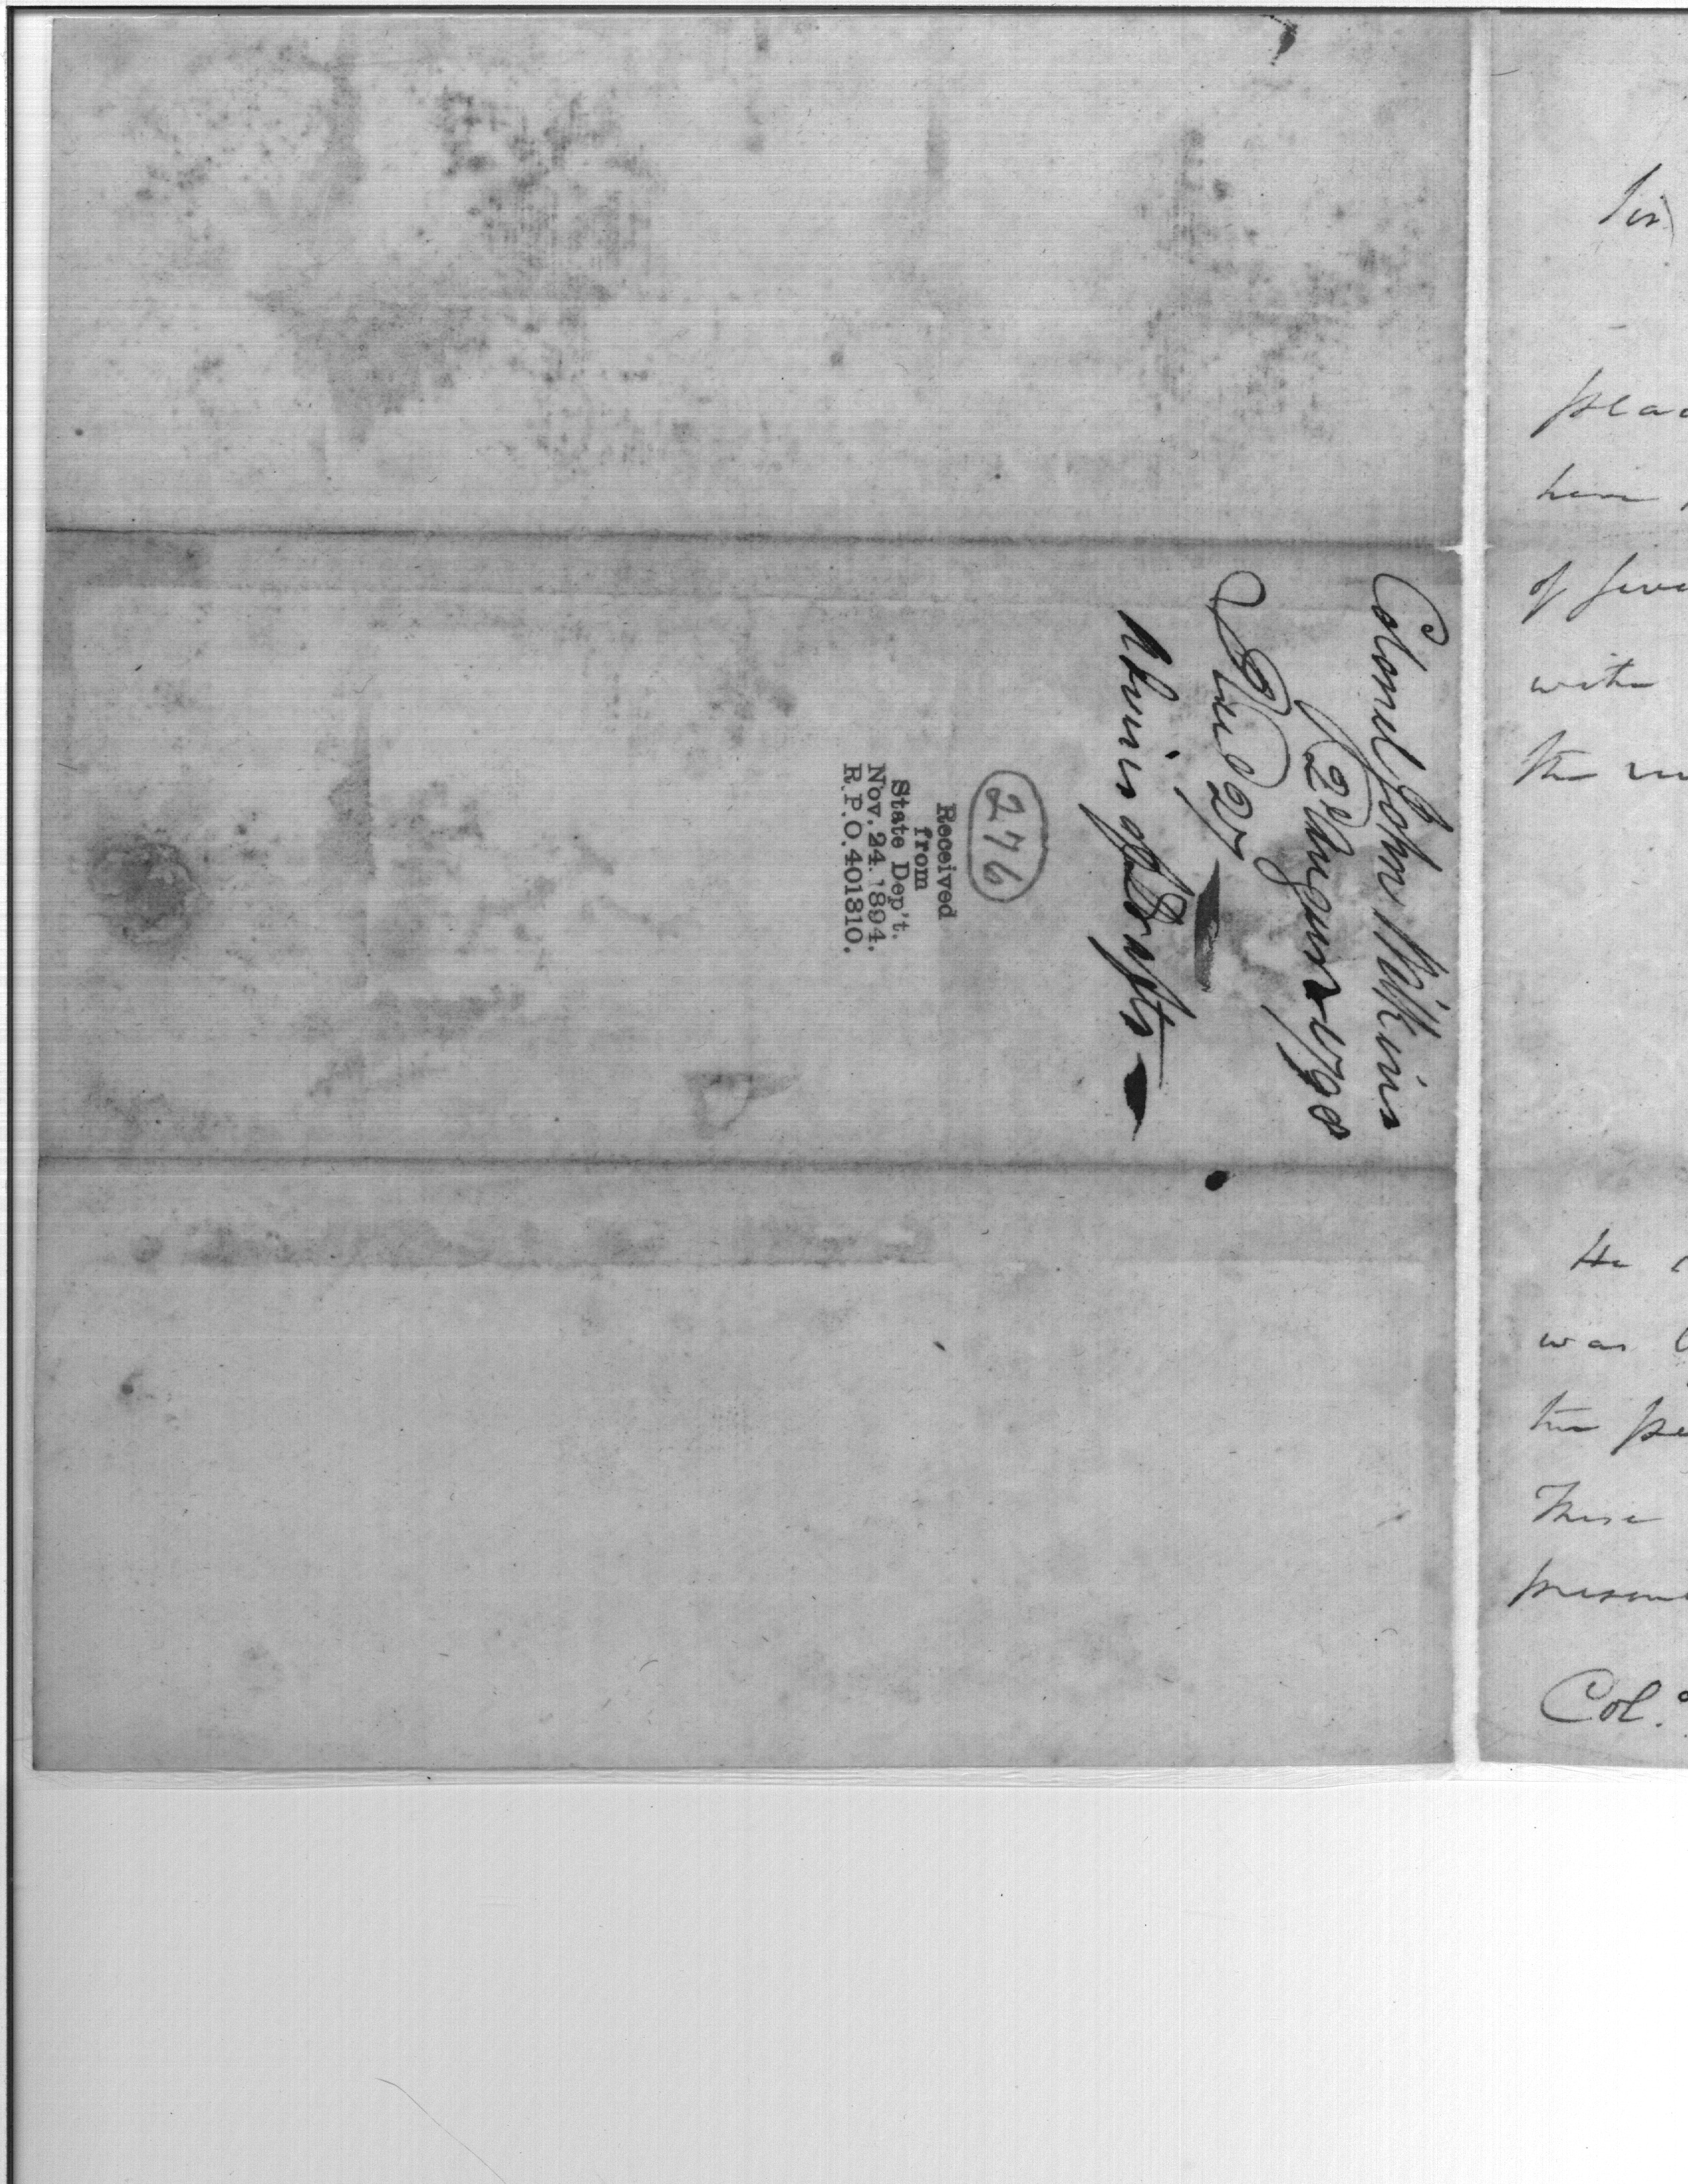 Colonel John Wilkins
2d August 1798
Recd 27
Advis of Drafts
276
Received
from
State Dep't.
Nov. 24. 1894.
R.P.O. 401810.
Sir
have
of
with
the
He
was
the
These
Col.o